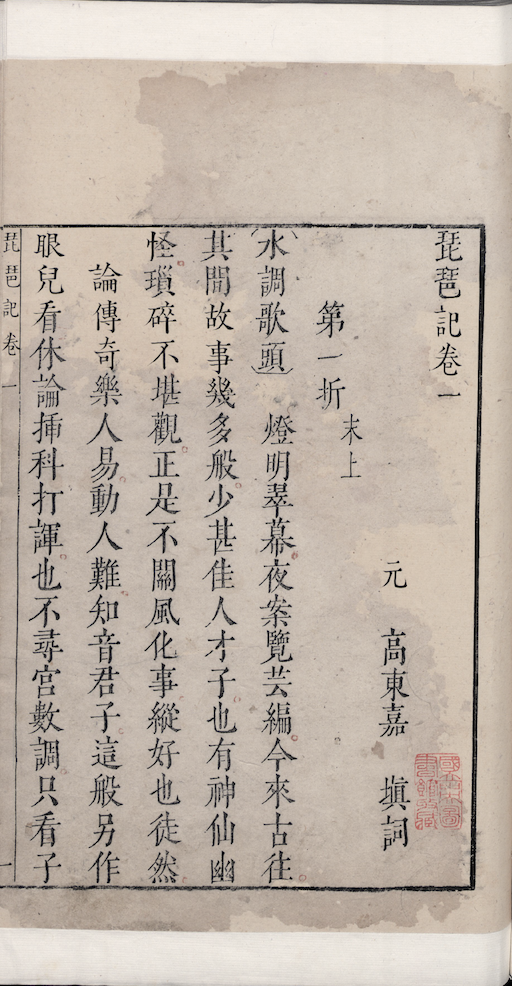 琵琶記卷一
元 高東嘉 塡詞
第一折
末上
水調歌頭 燈明翠幕夜案覽芸編今來古徃
其間故事幾多般少甚佳人才子也有神仙幽
怪瑣碎不堪觀正是不關風化事縱好也徒然
論傳奇樂人易動人難知音君子這般另作
眼兒看休論揷科打諢也不尋宮數調只看子
琵琶記卷一
一